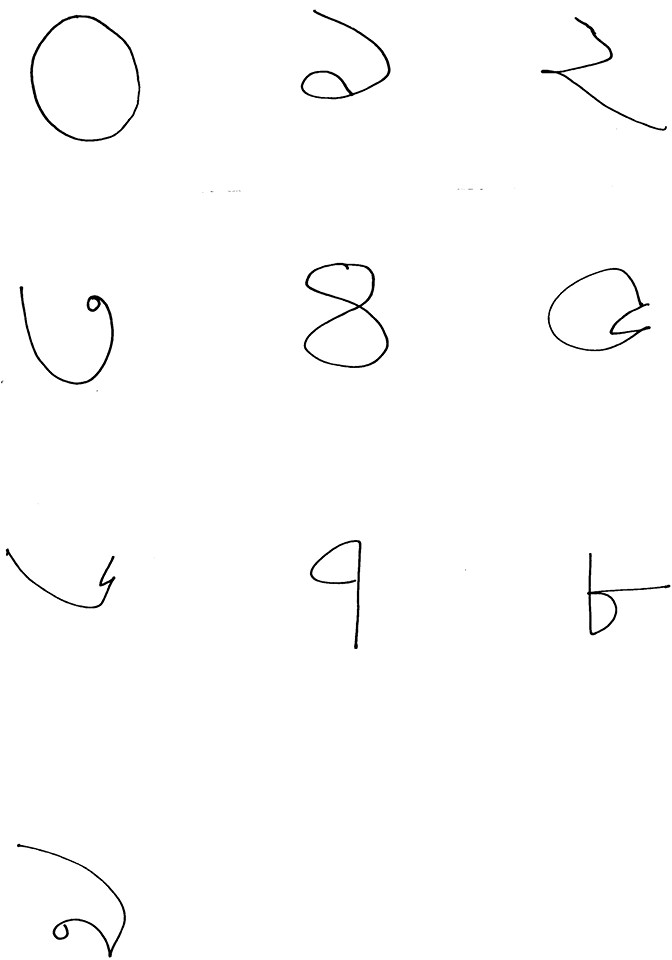 ০ ১ ২
৩ ৪ ৫
৬ ৭ ৮
৯